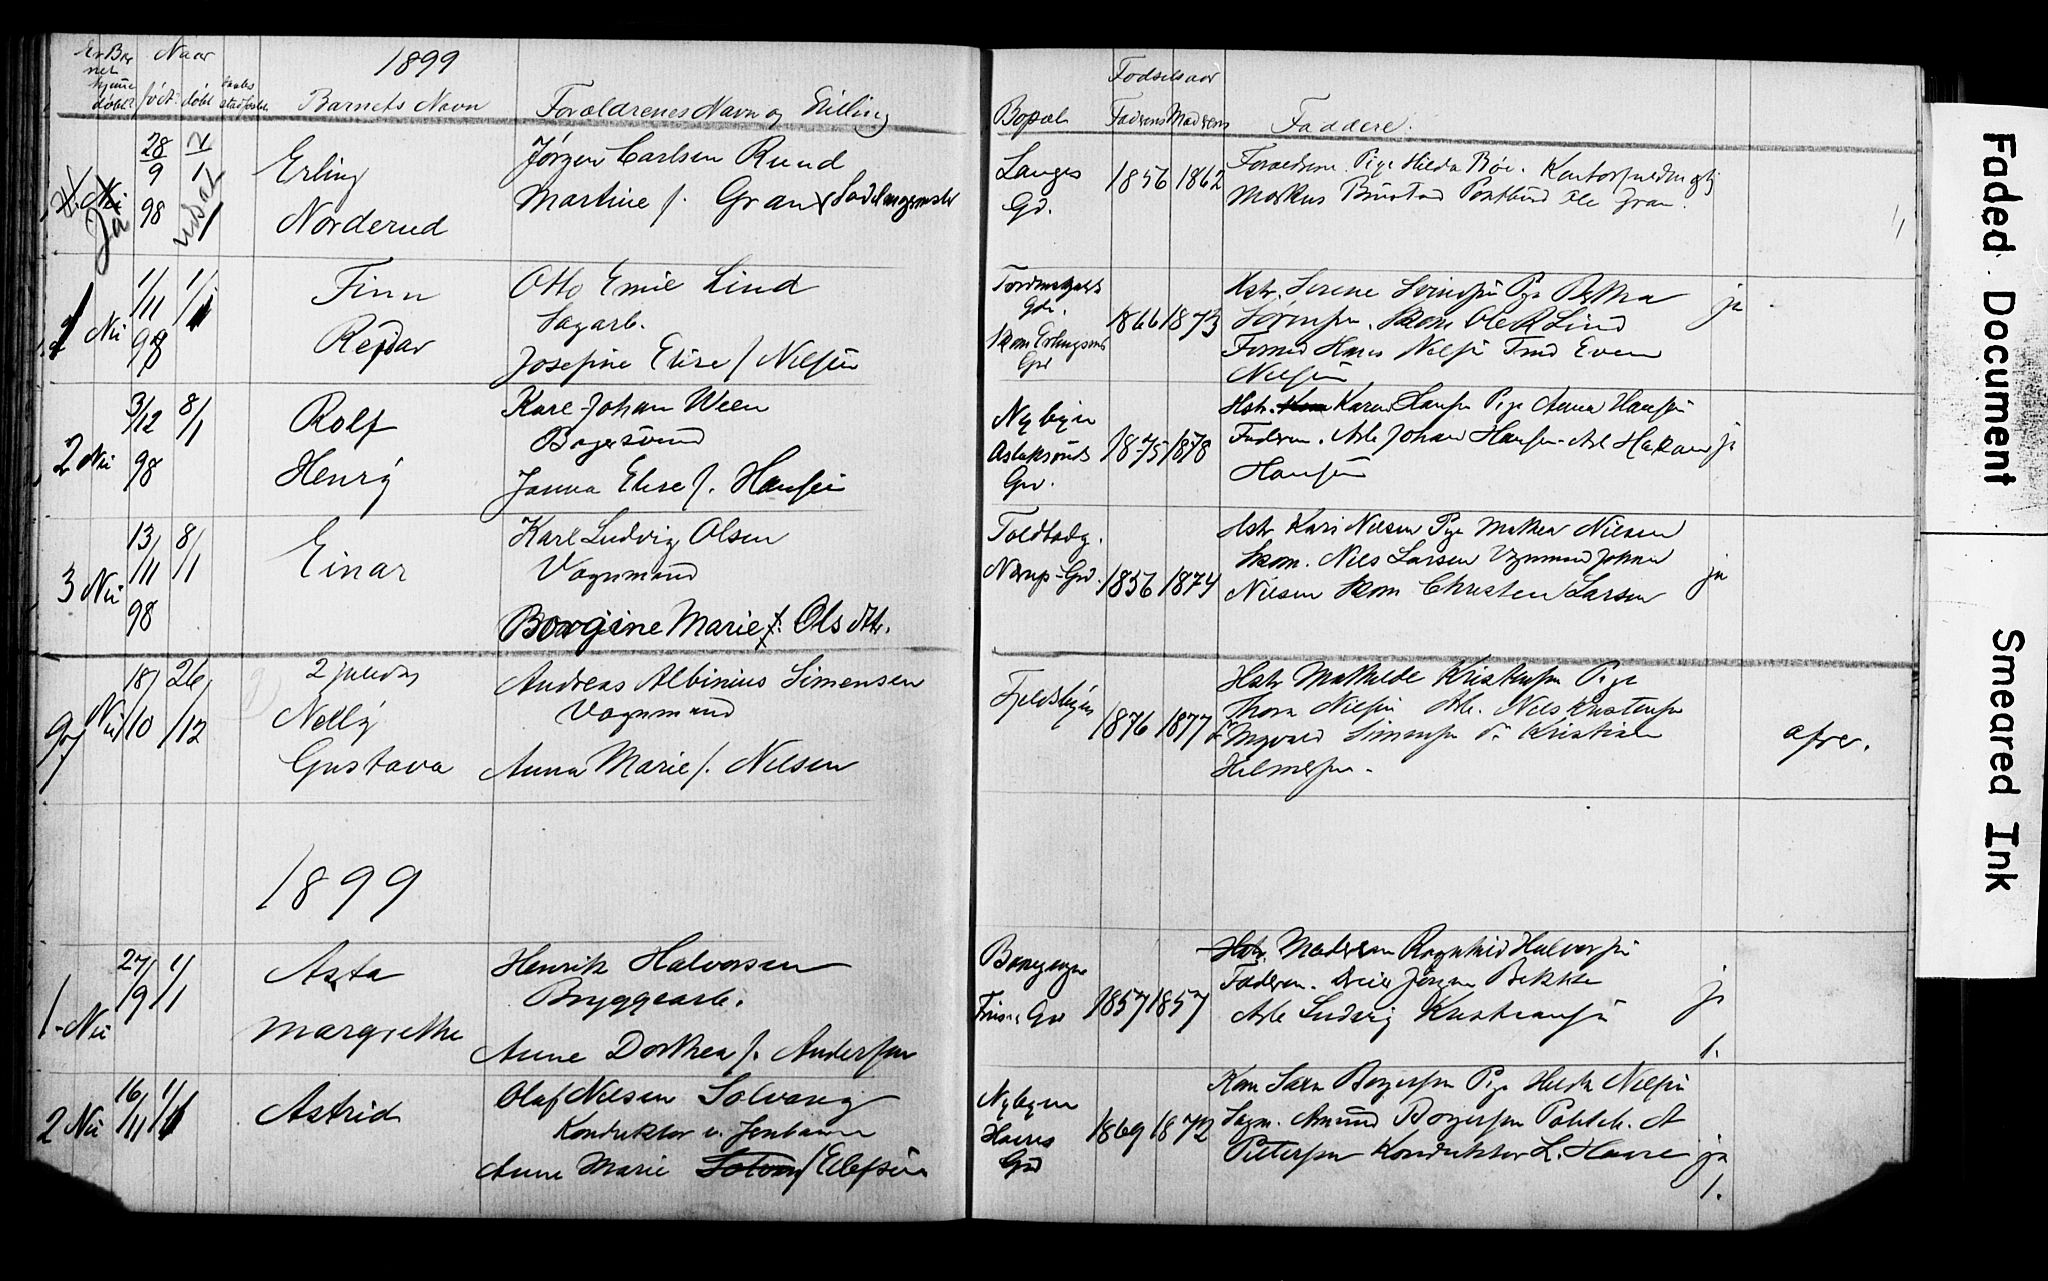 1899
Er Bar
net
hjemme
døbt? Naar
født? døbt
Barnets Navn
Forældrenes Navn og Stilling
Bopæl
Fødselsaar
Faderens Moderens
Faddere.
Ja
28
9
98
Erling
Norderud
Jørgen Carlsen Ruud
Martine f. Gran Sadelmagermstr
Langes
Gd.
1856 1862
Forældrene. Pige Hilda Bøe. Kontorfuldmægtig
Markus Bustad Postbud Ole Gran.
Nei
1/11 98
1/1
Finn
Reidar
Otto Emil Lind
Sagarb.
Josefine Elise f. Nilsen
Gd.
Gd
1866 1873
Hstr. Serene Pige
Sørensen. Skom Ole R Lind
Hans Nilsen Even
Nilsen
ja
2 Nei
3/12 98
8/1
Rolf
Henry
Karl Johan Ween
Bagersvend
Janna Elise f. Hansen
Nybyen
Aslaksruds
Gd.
1875 1878
Hstr. Karen Hansen Pige Anna Hansen
Faderen. Arb Johan Hansen Arb Hakan
Hansen
ja
3 Nei
13/11 98
8/1
Einar
Karl Ludvig Olsen
Vognmand
Borgine Marie f. Olsdtr.
Toldbodg.
Nærup-Gd.
1856 1874
Hstr Kari Nilsen Pige Mathea Nilsen
Skom. Nils Larsen Vognmand Johan
Nilsen Skom Christen Larsen
ja
97 Nei
18/10
26/12
2 juledag
Nelly
Gustava
Andreas Albinius Simensen
Vognmand
Anna Marie f. Nilsen
Fjeldsbyen
1876 1877
Hstr Mathilde Kristensen Pige
Thora Nilsen Arb. Nils Kristensen
Ingvald Simensen Kristian
Hilmersen.
afrer.
1899
1 Nei
27/9
1/1
Asta
Margrethe
Henrik Halvorsen
Bryggearb.
Anne Dorthea f. Andersen
Gd
1857 1857
Hstr. Moderen Ragnhild Halvorsen
Faderen. Dreier Jørgen Bekken
Arb Ludvig Kristiansen
j
1.
2 Nei
16/11
1/1
Astrid
Olaf Nilsen Solvang
Konduktør v. Jernbanen
Anne Marie Solvang f Ellefsen
Nybyen
Haares
Gd
1869 1872
Kone Sara Borgersen Pige Hilda Nilsen
Sagm. Amund Borgersen A
Pettersen Konduktør L. Haare
ja
1.
Faded Document
Smeared Ink